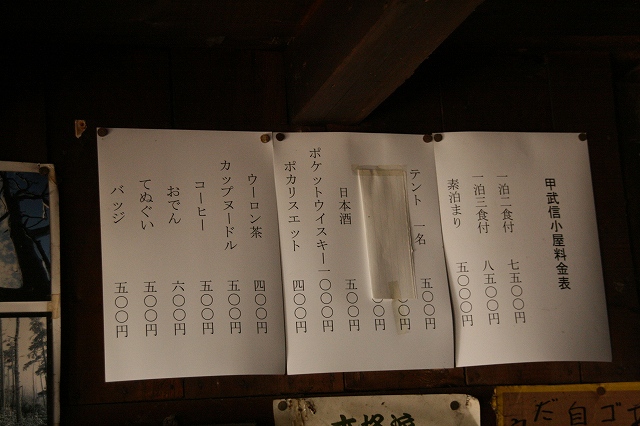 甲武信小屋料金表
一泊二食付 七五〇〇円
一泊三食付 八五〇〇円
素泊まり 五〇〇〇円
テント 一名 五〇〇円
〇円
日本酒 五〇〇円
ポケットウイスキー 一〇〇〇円
ポカリスエット 四〇〇円
ウーロン茶 四〇〇円
カップヌードル 五〇〇円
コーヒー 五〇〇円
おでん 六〇〇円
てぬぐい 五〇〇円
バッジ 五〇〇円
だ自ゴ